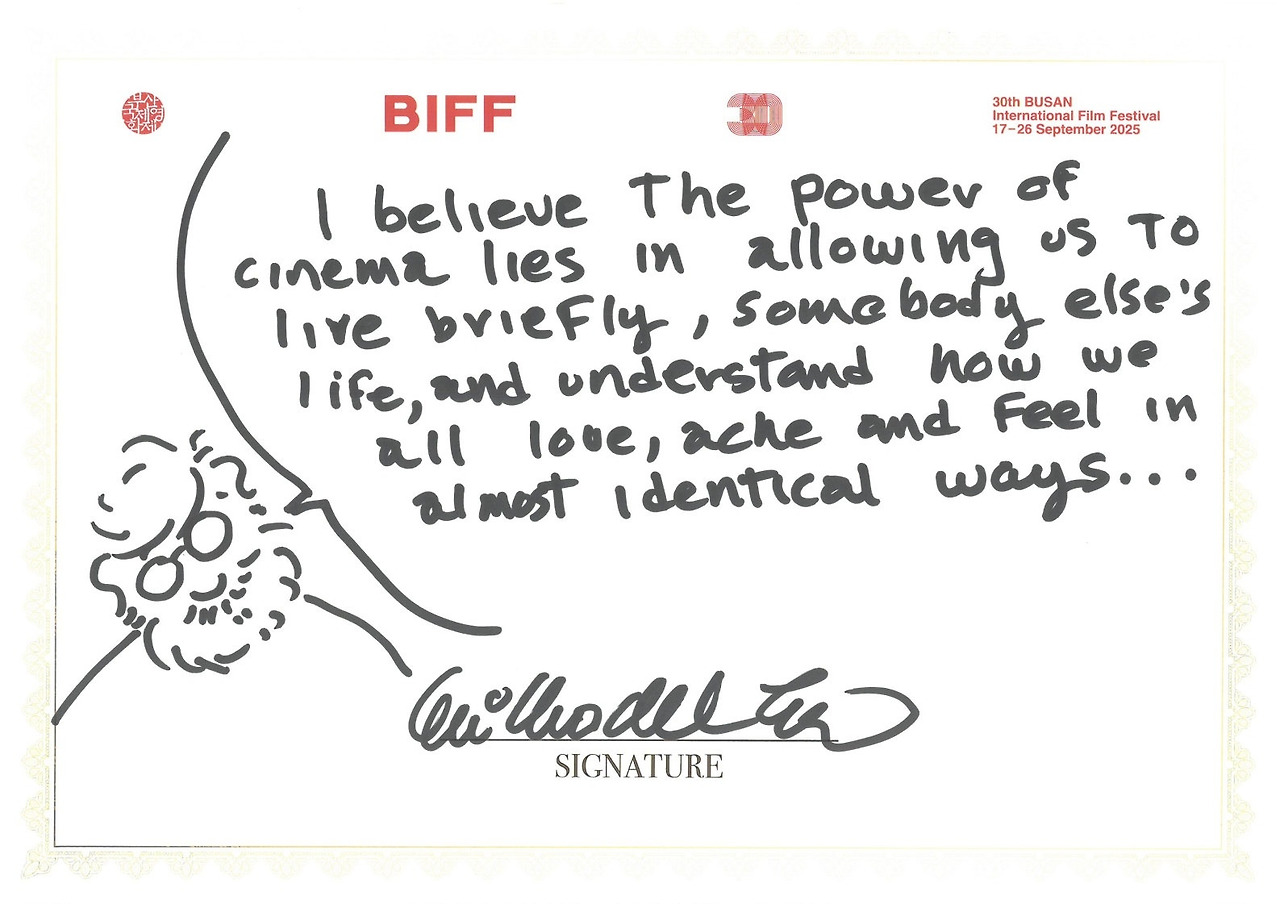 부산
국제영
화제
BIFF
30th BUSAN
International Film Festival
17–26 September 2025
I believe The power of
cinema lies in allowing us To
live briefly, somebody else's
life, and understand how we
all love, ache and Feel in
almost identical ways...
Guillermo del Toro
SIGNATURE